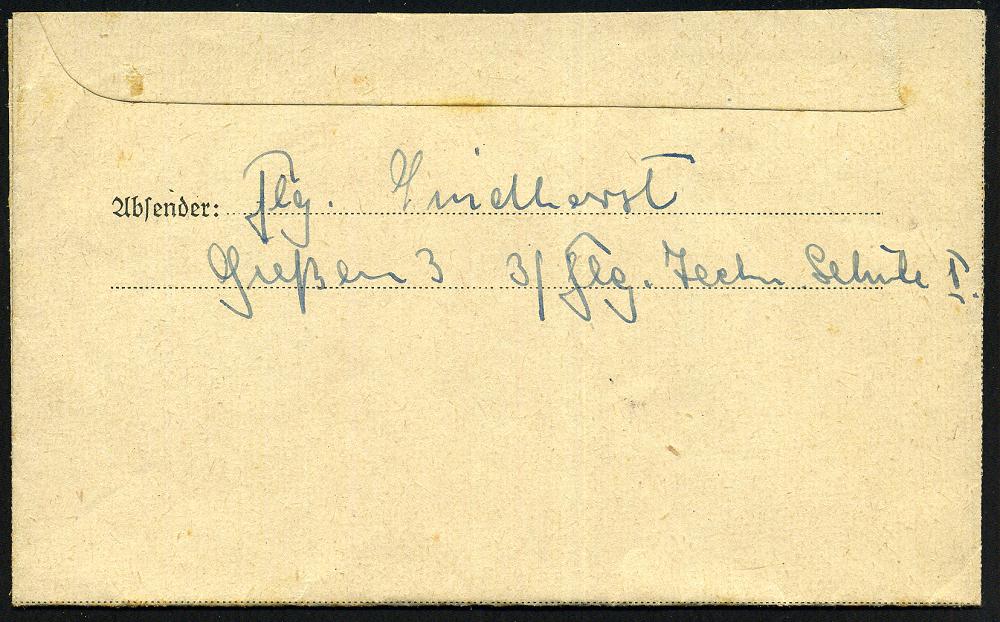 Absender: Flg. Lindhorst
Gießen 3 3/ Flg. Techn. Schule I.